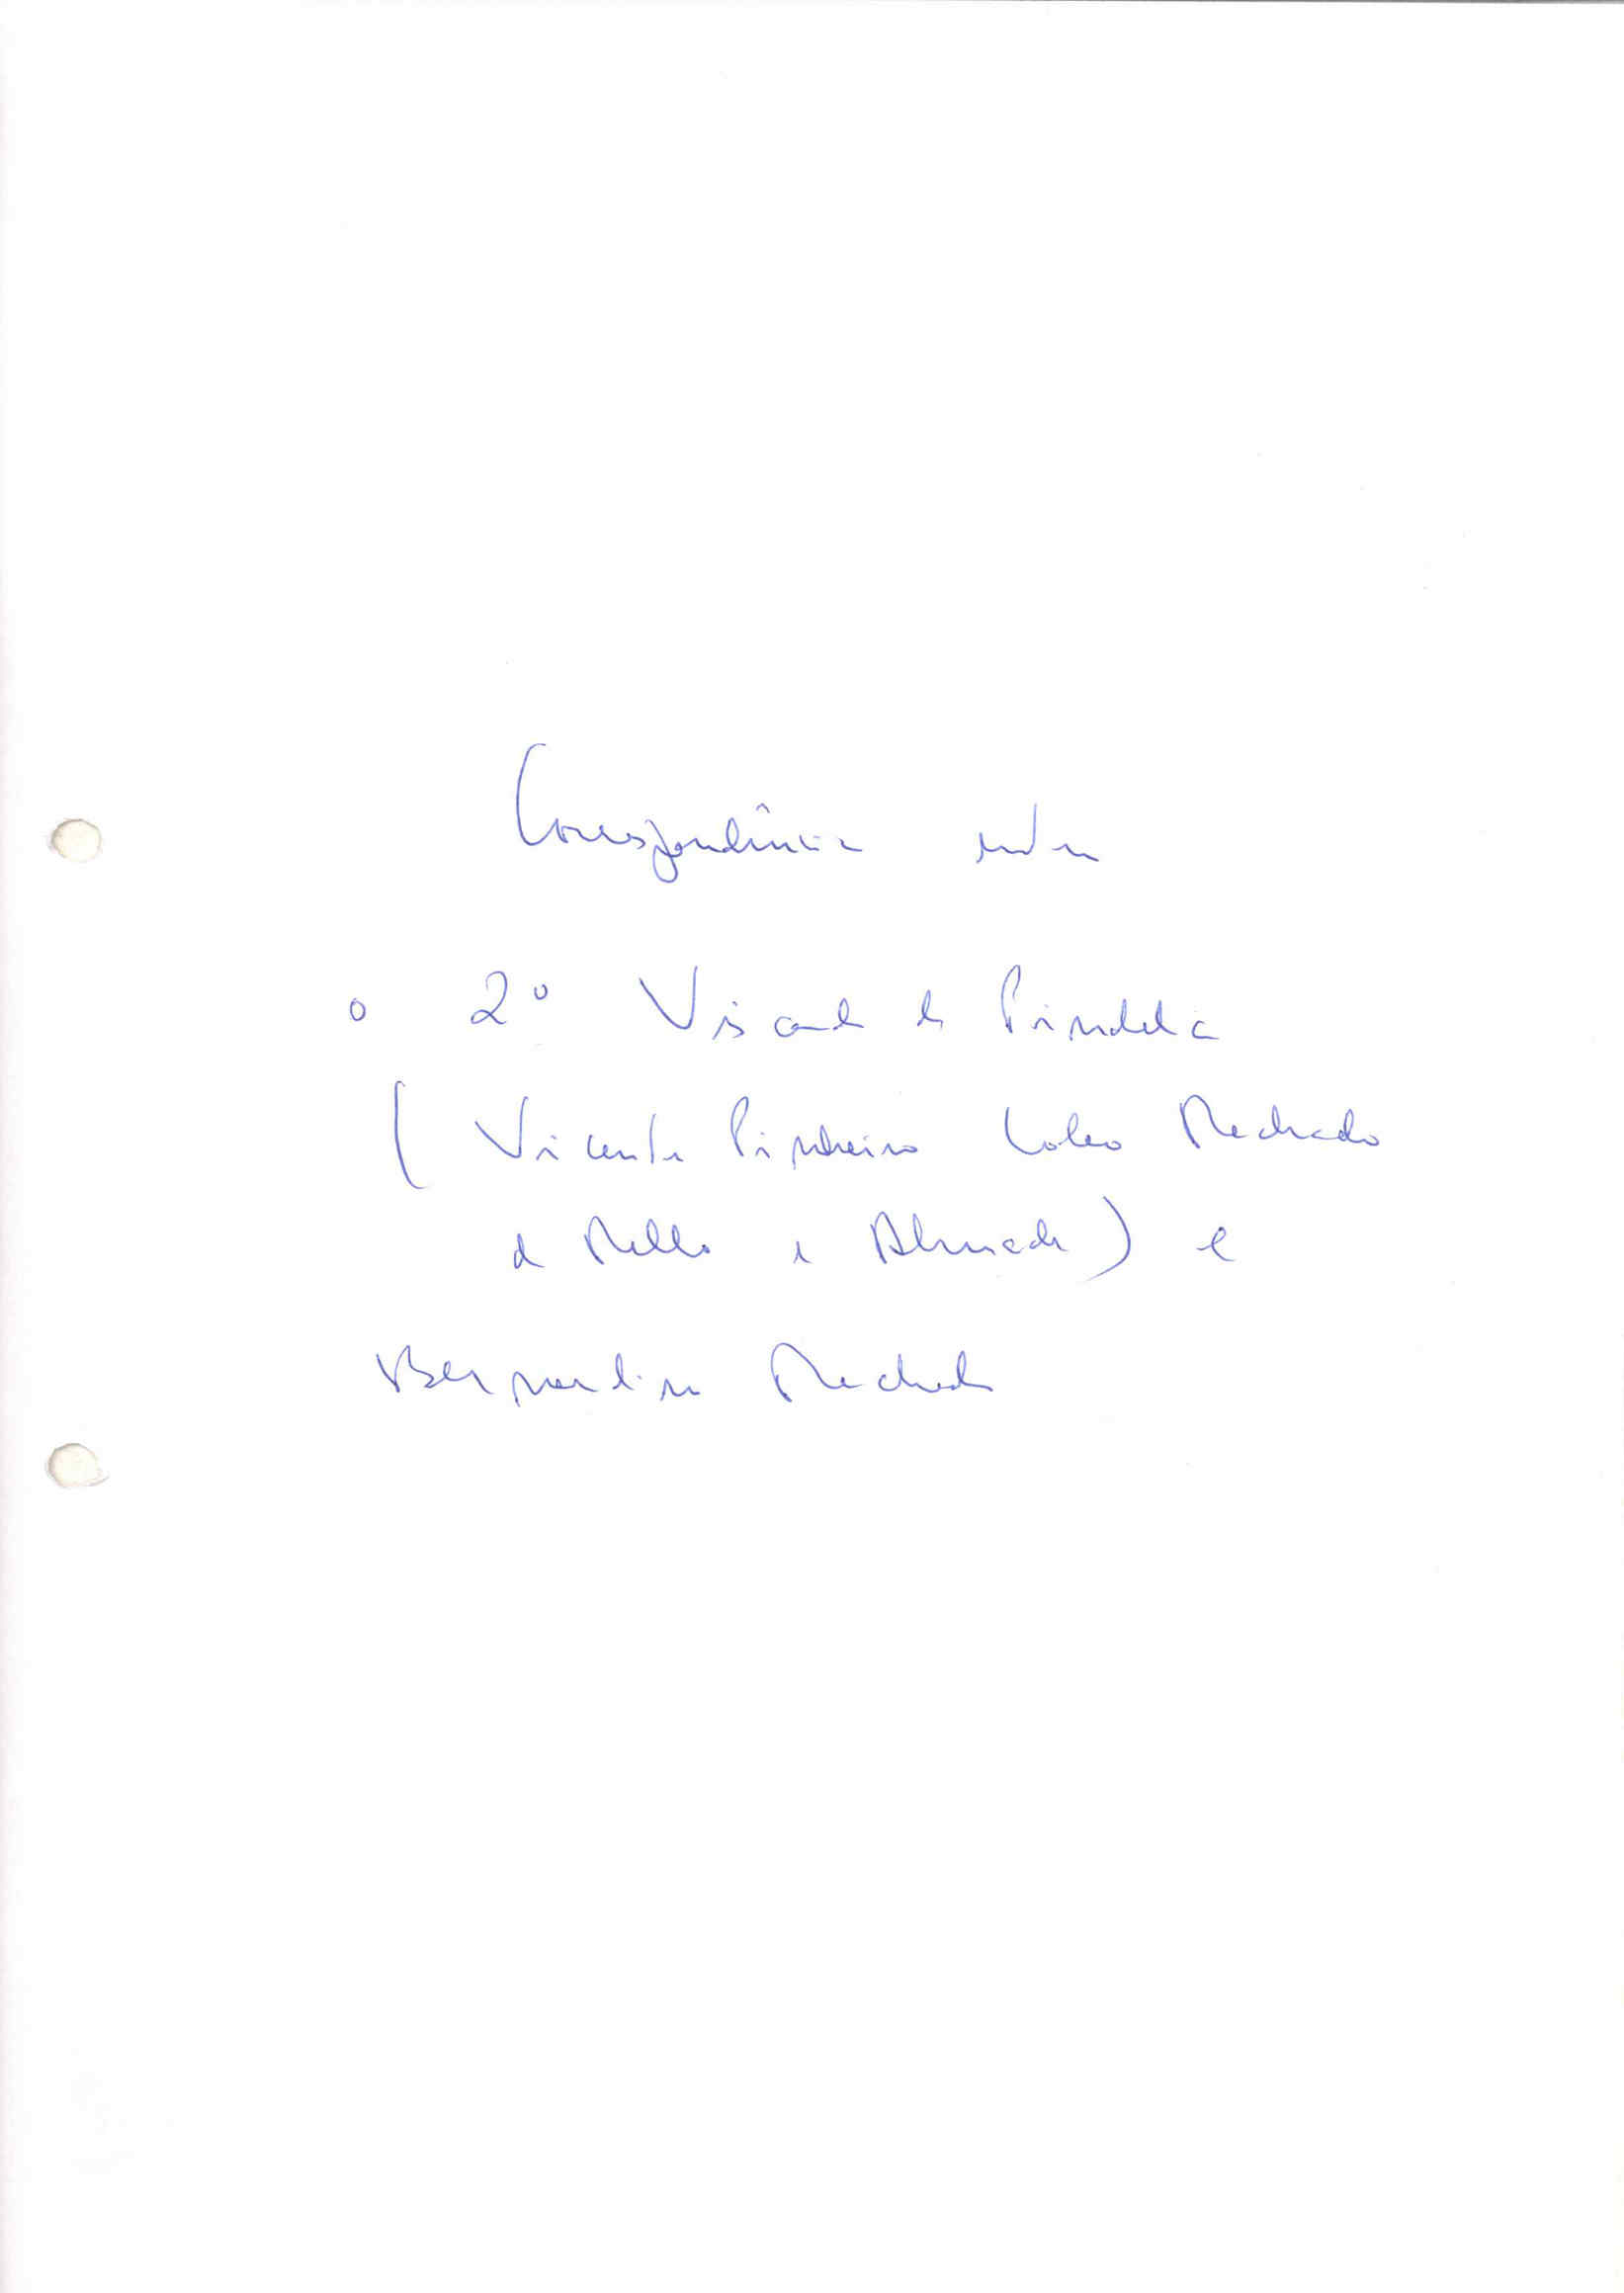 Correspondência entre
o 2º Visconde de Pindela
(Vicente Pinheiro Lobo Machado
de Mello e Almada) e
Bernardino Machado